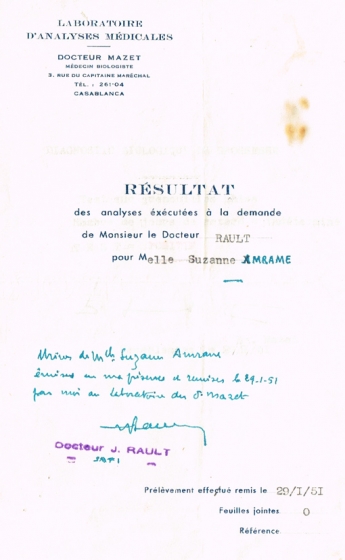 LABORATOIRE
D'ANALYSES MÉDICALES
DOCTEUR MAZET
MÉDECIN BIOLOGISTE
3, RUE DU CAPITAINE MARÉCHAL
TÉL. : 261-04
CASABLANCA
RÉSULTAT
des analyses éxécutées à la demande
de Monsieur le Docteur RAULT
pour Melle Suzanne AMRAME
Urines de Mlle Suzanne Amrame
émises en ma présence et remises le 29.1.51
par moi au laboratoire du Dr Mazet
Docteur J. RAULT
SAFI
Prélèvement effectué remis le 29/I/51
Feuilles jointes 0
Référence